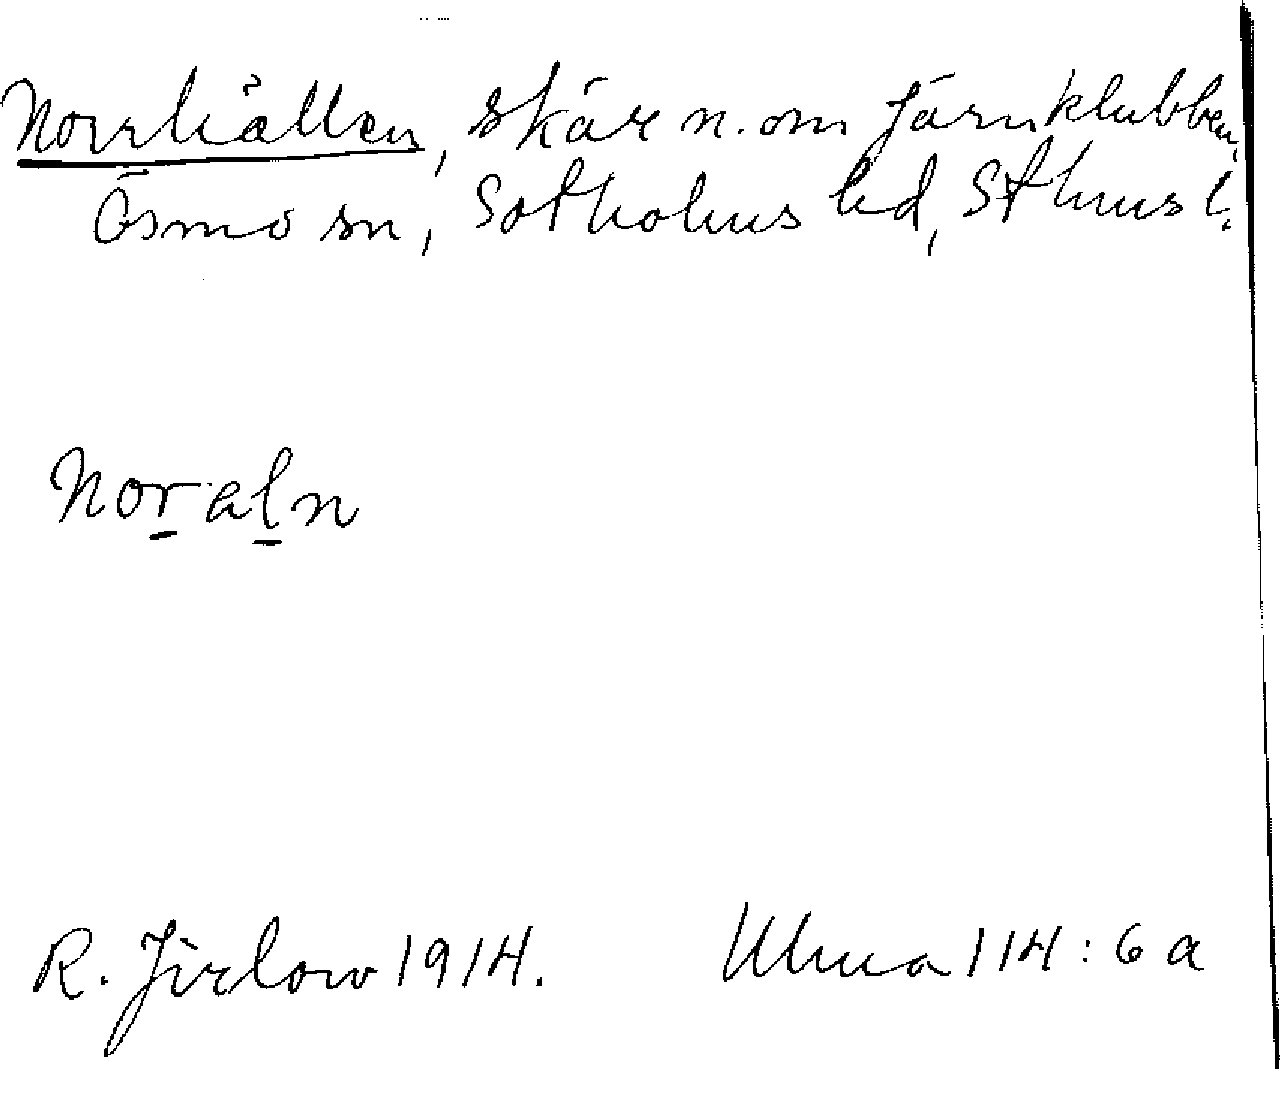 Norrhållen, skär n. om Järnklubben,
Ösmo sn, Sotholms hd, Sthms l.
Noraln
R. Jirlow 1914. Ulma 114:6 a